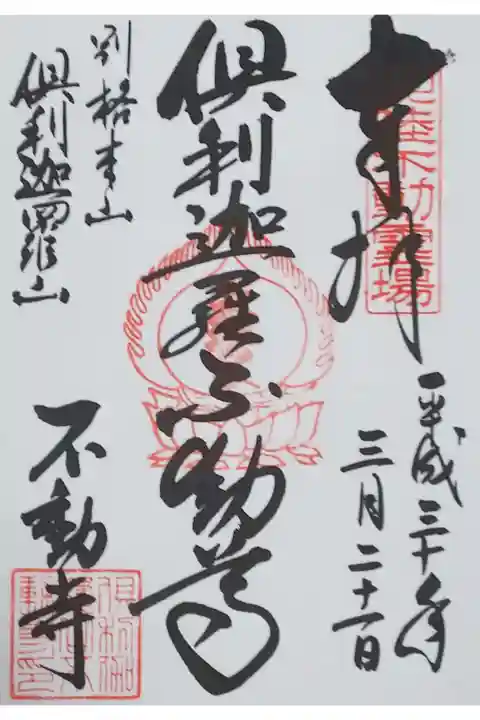 奉拝
平成三十年
三月二十一日
俱利迦羅不動尊
別格本山
俱利迦羅山
不動寺
不動霊場